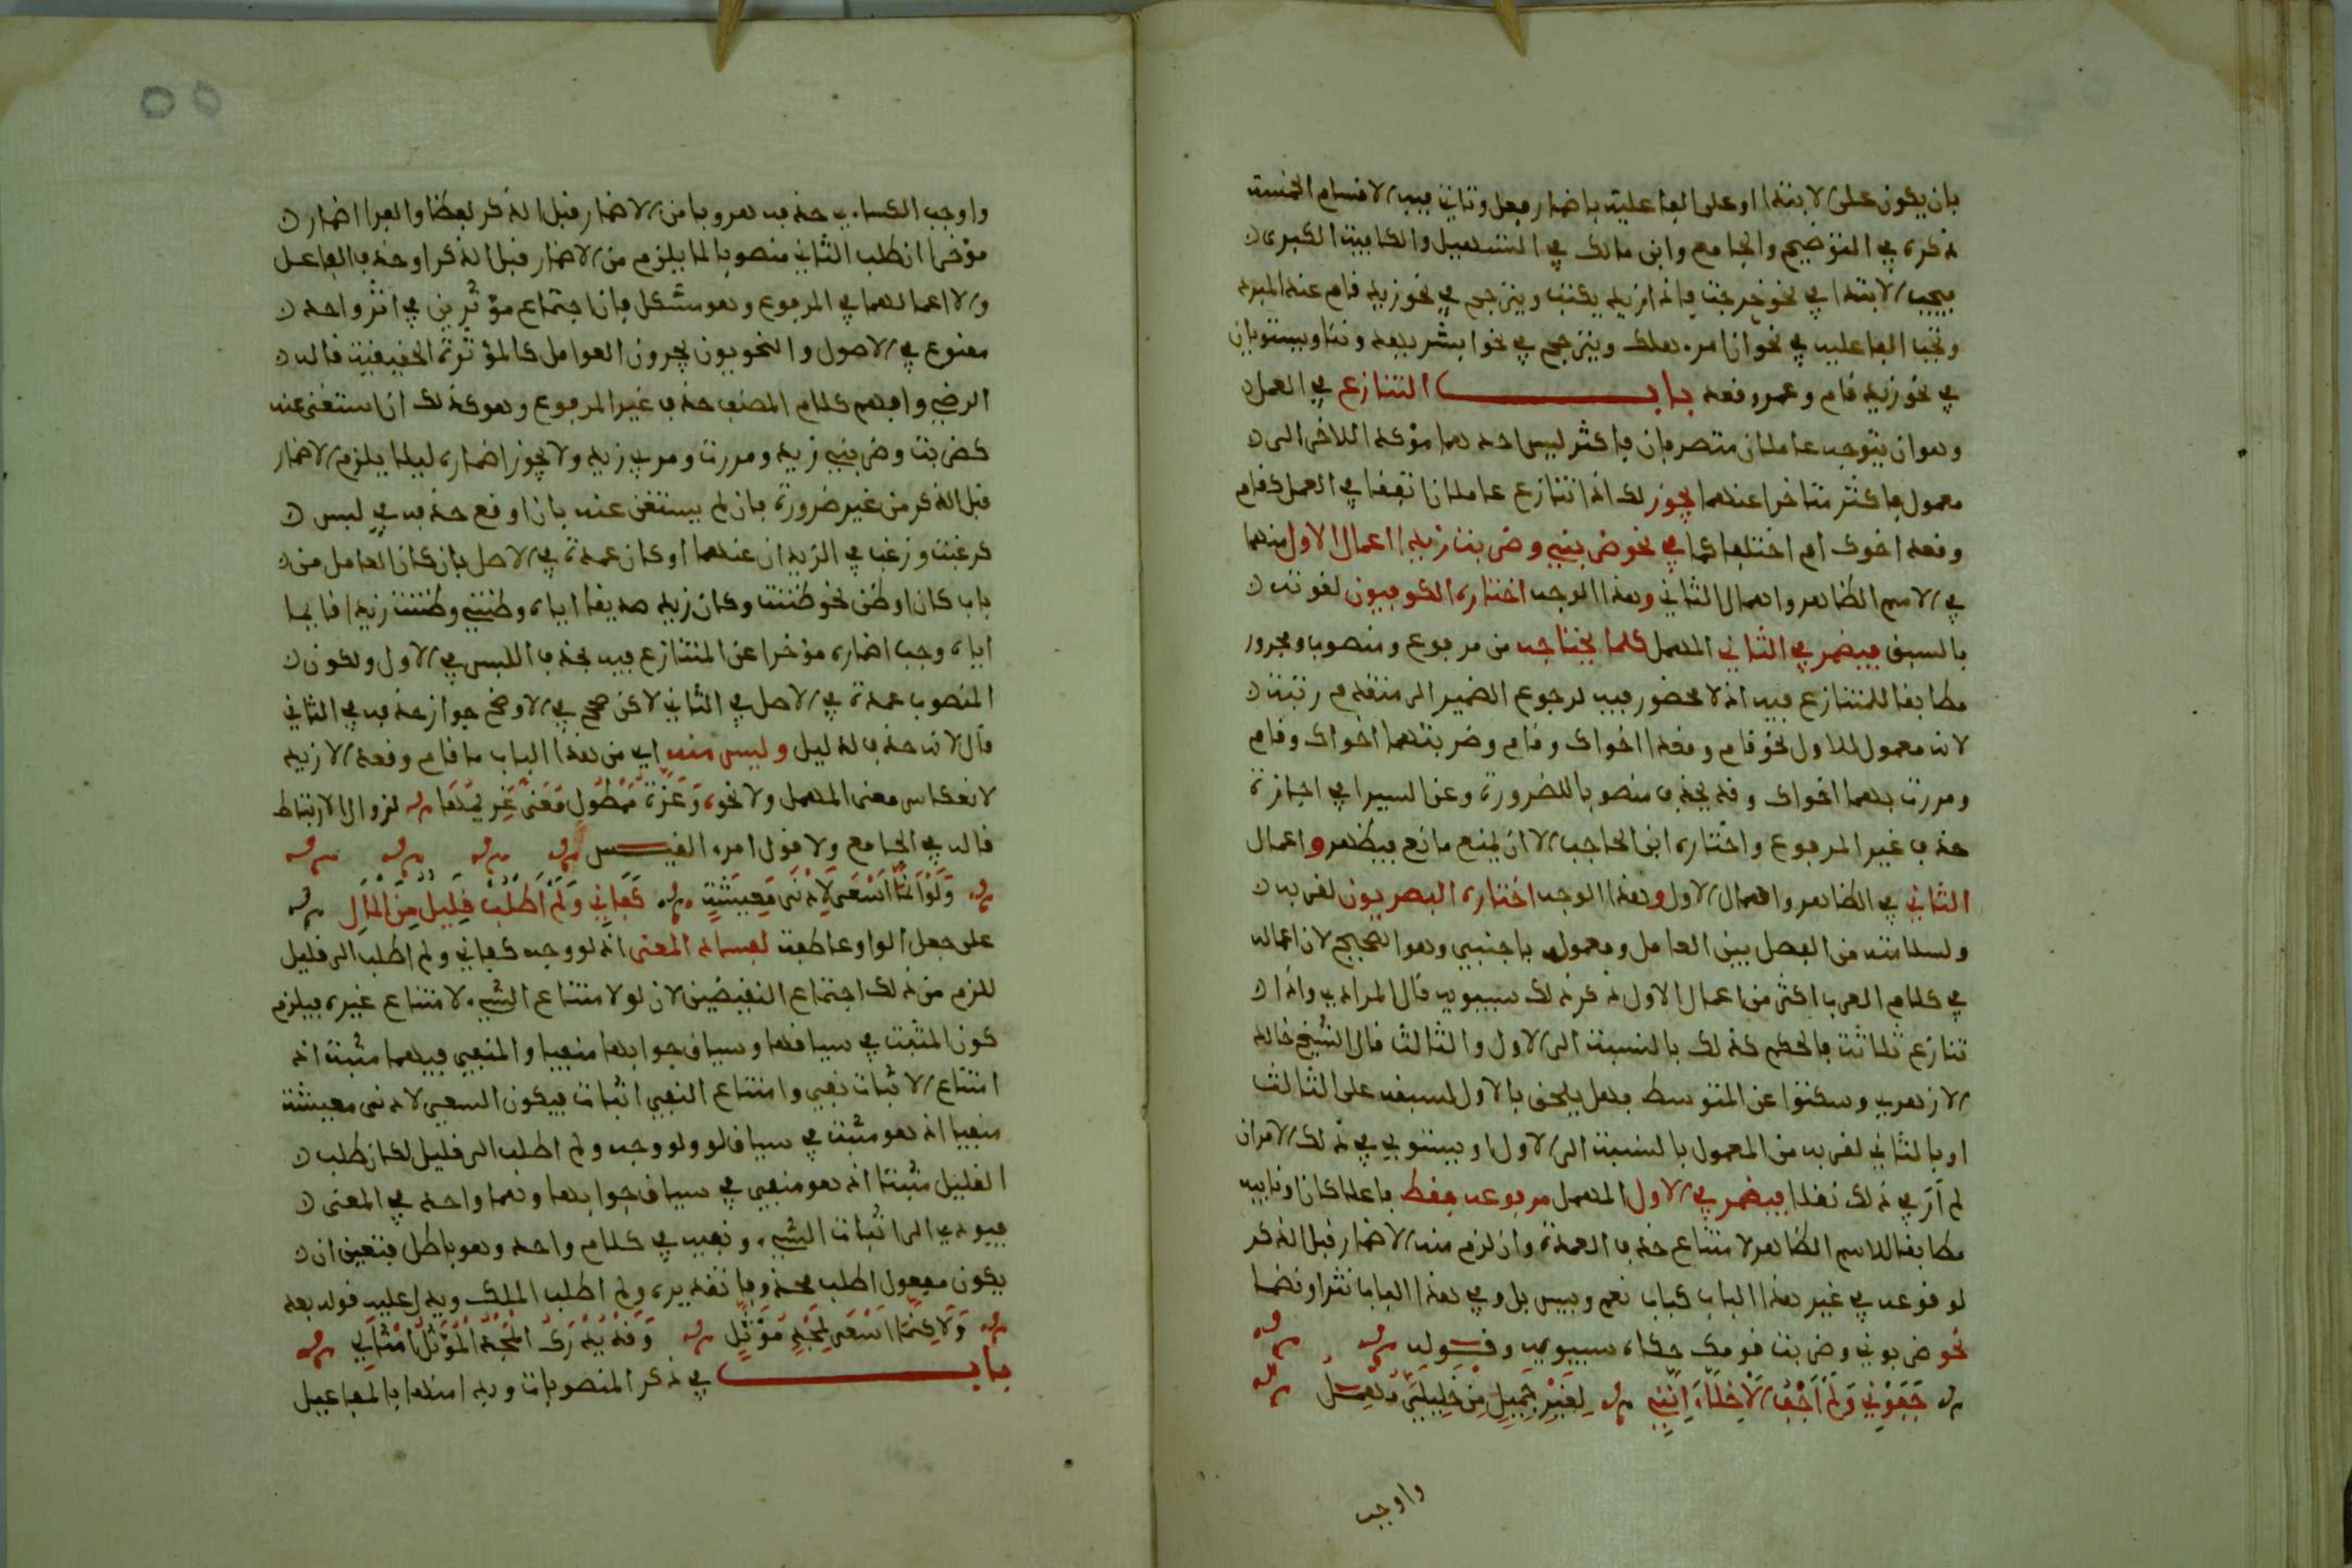 بان يكون على الابتدا او على الفاعلية باضمار فعل وتاتي فيه الاقسام الخمسة
ذكره في التوضيح والجامع وابن مالك في التسهيل والكافية الكبرى
فيجب الابتدا في نحو خرجت فاذا زيد يكتب ويترجح في نحو زيد قام عند المبرد
وتجب الفاعلية في نحو ان امرء هلك ويترجح في نحو ابشر يهدوننا ويستويان
في نحو زيد قام وعمرو قعد باب التنازع في العمل
وهو ان يتوجه عاملان متصرفان فاكثر ليس احدهما مؤكدا للاخر الى
معمول فاكثر متاخر عنهما يجوز لك اذا تنازع عاملان اتفقا في العمل كقام
وقعد اخوك ام اختلفا كما في نحو ضربني وضربت زيدا اعمال الاول منهما
في الاسم الظاهر واهمال الثاني وهذا الوجه اختاره الكوفيون لقوته
بالسبق فيضمر في الثاني المهمل كلما يحتاجه من مرفوع ومنصوب ومجرور
مطابقا للمتنازع فيه اذ لا محضور فيه لرجوع الضمير الى متقدم رتبة
لانه معمول للاول نحو قام وقعدا اخواك وقام وضربتهما اخواك وقام
ومررت بهما اخواك وقد يحذف منصوبا للضرورة وعن السيرافي اجازة
حذف غير المرفوع واختاره ابن الحاجب الا ان يمنع مانع فيظهر واعمال
الثاني في الظاهر واهمال الاول وهذا الوجه اختاره البصريون لقربه
ولسلامته من الفصل بين العامل ومعموله باجنبي وهو الصحيح لان اعماله
في كلام العرب اكثر من اعمال الاول ذكر ذلك سيبويه قال المرادي واذا
تنازع ثلاثة فالحكم كذلك بالنسبة الى الاول والثالث قال الشيخ خالد
الازهري وسكتوا عن المتوسط فهل يلحق بالاول لسبقه على الثالث
او بالثاني لقربه من المعمول بالنسبة الى الاول او يستوي في ذلك الامران
لم ار في ذلك نقلا فيضمر في الاول المهمل مرفوعه فقط فاعلا كان او نايبه
مطابقا للاسم الظاهر لامتناع حذف العمدة وان لزم منه الاضمار قبل الذكر
لوقوعه في غير هذا الباب كباب نعم وبيس بل وفي هذا الباب نثرا ونضما
نحو ضربوني وضربت قومك حكاه سيبويه وقوله
جَفَوْنِي وَلَمْ أَجْفُ الْأَخِلَّاءَ إِنَّنِي لِغَيْرِ جَمِيلٍ مِنْ خَلِيلِيَ مُهْمِلُ
واوجب
واوجب الكساءي حذفه هروبا من الاضمار قبل الذكر لفظا والفرا اضماره
مؤخرا ان طلب الثاني منصوبا لما يلزم من الاضمار قبل الذكر او حذف الفاعل
والا اعمالهما في المرفوع وهو مشكل فان اجتماع مؤثرين في اثر واحد
ممنوع في الاصول والنحويون يجرون العوامل كالمؤثرة الحقيقية قاله
الرضي وافهم كلام المصنف حذف غير المرفوع وهو كذلك ان استغنى عنه
كضربت وضربني زيد ومررت ومر بي زيد ولا يجوز اضماره ليلا يلزم الاضمار
قبل الذكر من غير ضرورة فان لم يستغن عنه بان اوقع حذفه في لبس
كرغبت ورغب في الزيدان عنهما او كان عمدة في الاصل بان كان العامل من
باب كان او ظن نحو كنت وكان زيد صديقا اياه وظنني وظننت زيدا قايما
اياه وجب اضماره مؤخرا عن المتنازع فيه بحذف اللبس في الاول ولكون
المنصوب عمدة في الاصل في الثاني لاكن صحح في الاوضح جواز حذفه في الثاني
قال لانه حذف لدليل وليس منه اي من هذا الباب ما قام وقعد الا زيد
لانعكاس معنى المهمل ولا نحو وَعَزَّةُ مَمْطُولٌ مُعَنًّى غَرِيمُهَا لزوال الارتباط
قاله في الجامع ولا قول امرء القيس
وَلَوْ أَنَّمَا أَسْعَى لِأَدْنَى مَعِيشَةٍ كَفَانِي وَلَمْ أَطْلُبْ قَلِيلٌ مِنَ الْمَالِ
على جعل الواو عاطفة لفساد المعنى اذ لو وجه كفاني ولم اطلب الى قليل
للزم من ذلك اجتماع النقيضين لان لو لامتناع الشيء لامتناع غيره فيلزم
كون المثبت في سياقها وسياق جوابها منفيا والمنفي فيهما مثبتا اذ
امتناع الاثبات نفي وامتناع النفي اثبات فيكون السعي لادنى معيشة
منفيا اذ هو مثبت في سياق لو ولو وجه ولم اطلب الى قليل لكان طلب
القليل مثبتا اذ هو منفي في سياق جوابها وهما واحد في المعنى
فيودي الى اثبات الشيء ونفيه في كلام واحد وهو باطل فتعين ان
يكون مفعول اطلب محذوفا تقديره ولم اطلب الملك ويدل عليه قوله بعد
وَلَاكِنَّمَا أَسْعَى لِمَجْدٍ مُؤَثَّلٍ وَقَدْ يُدْرِكُ الْمَجْدَ الْمُؤَثَّلَ أَمْثَالِي
باب في ذكر المنصوبات وبدا منها بالمفاعيل